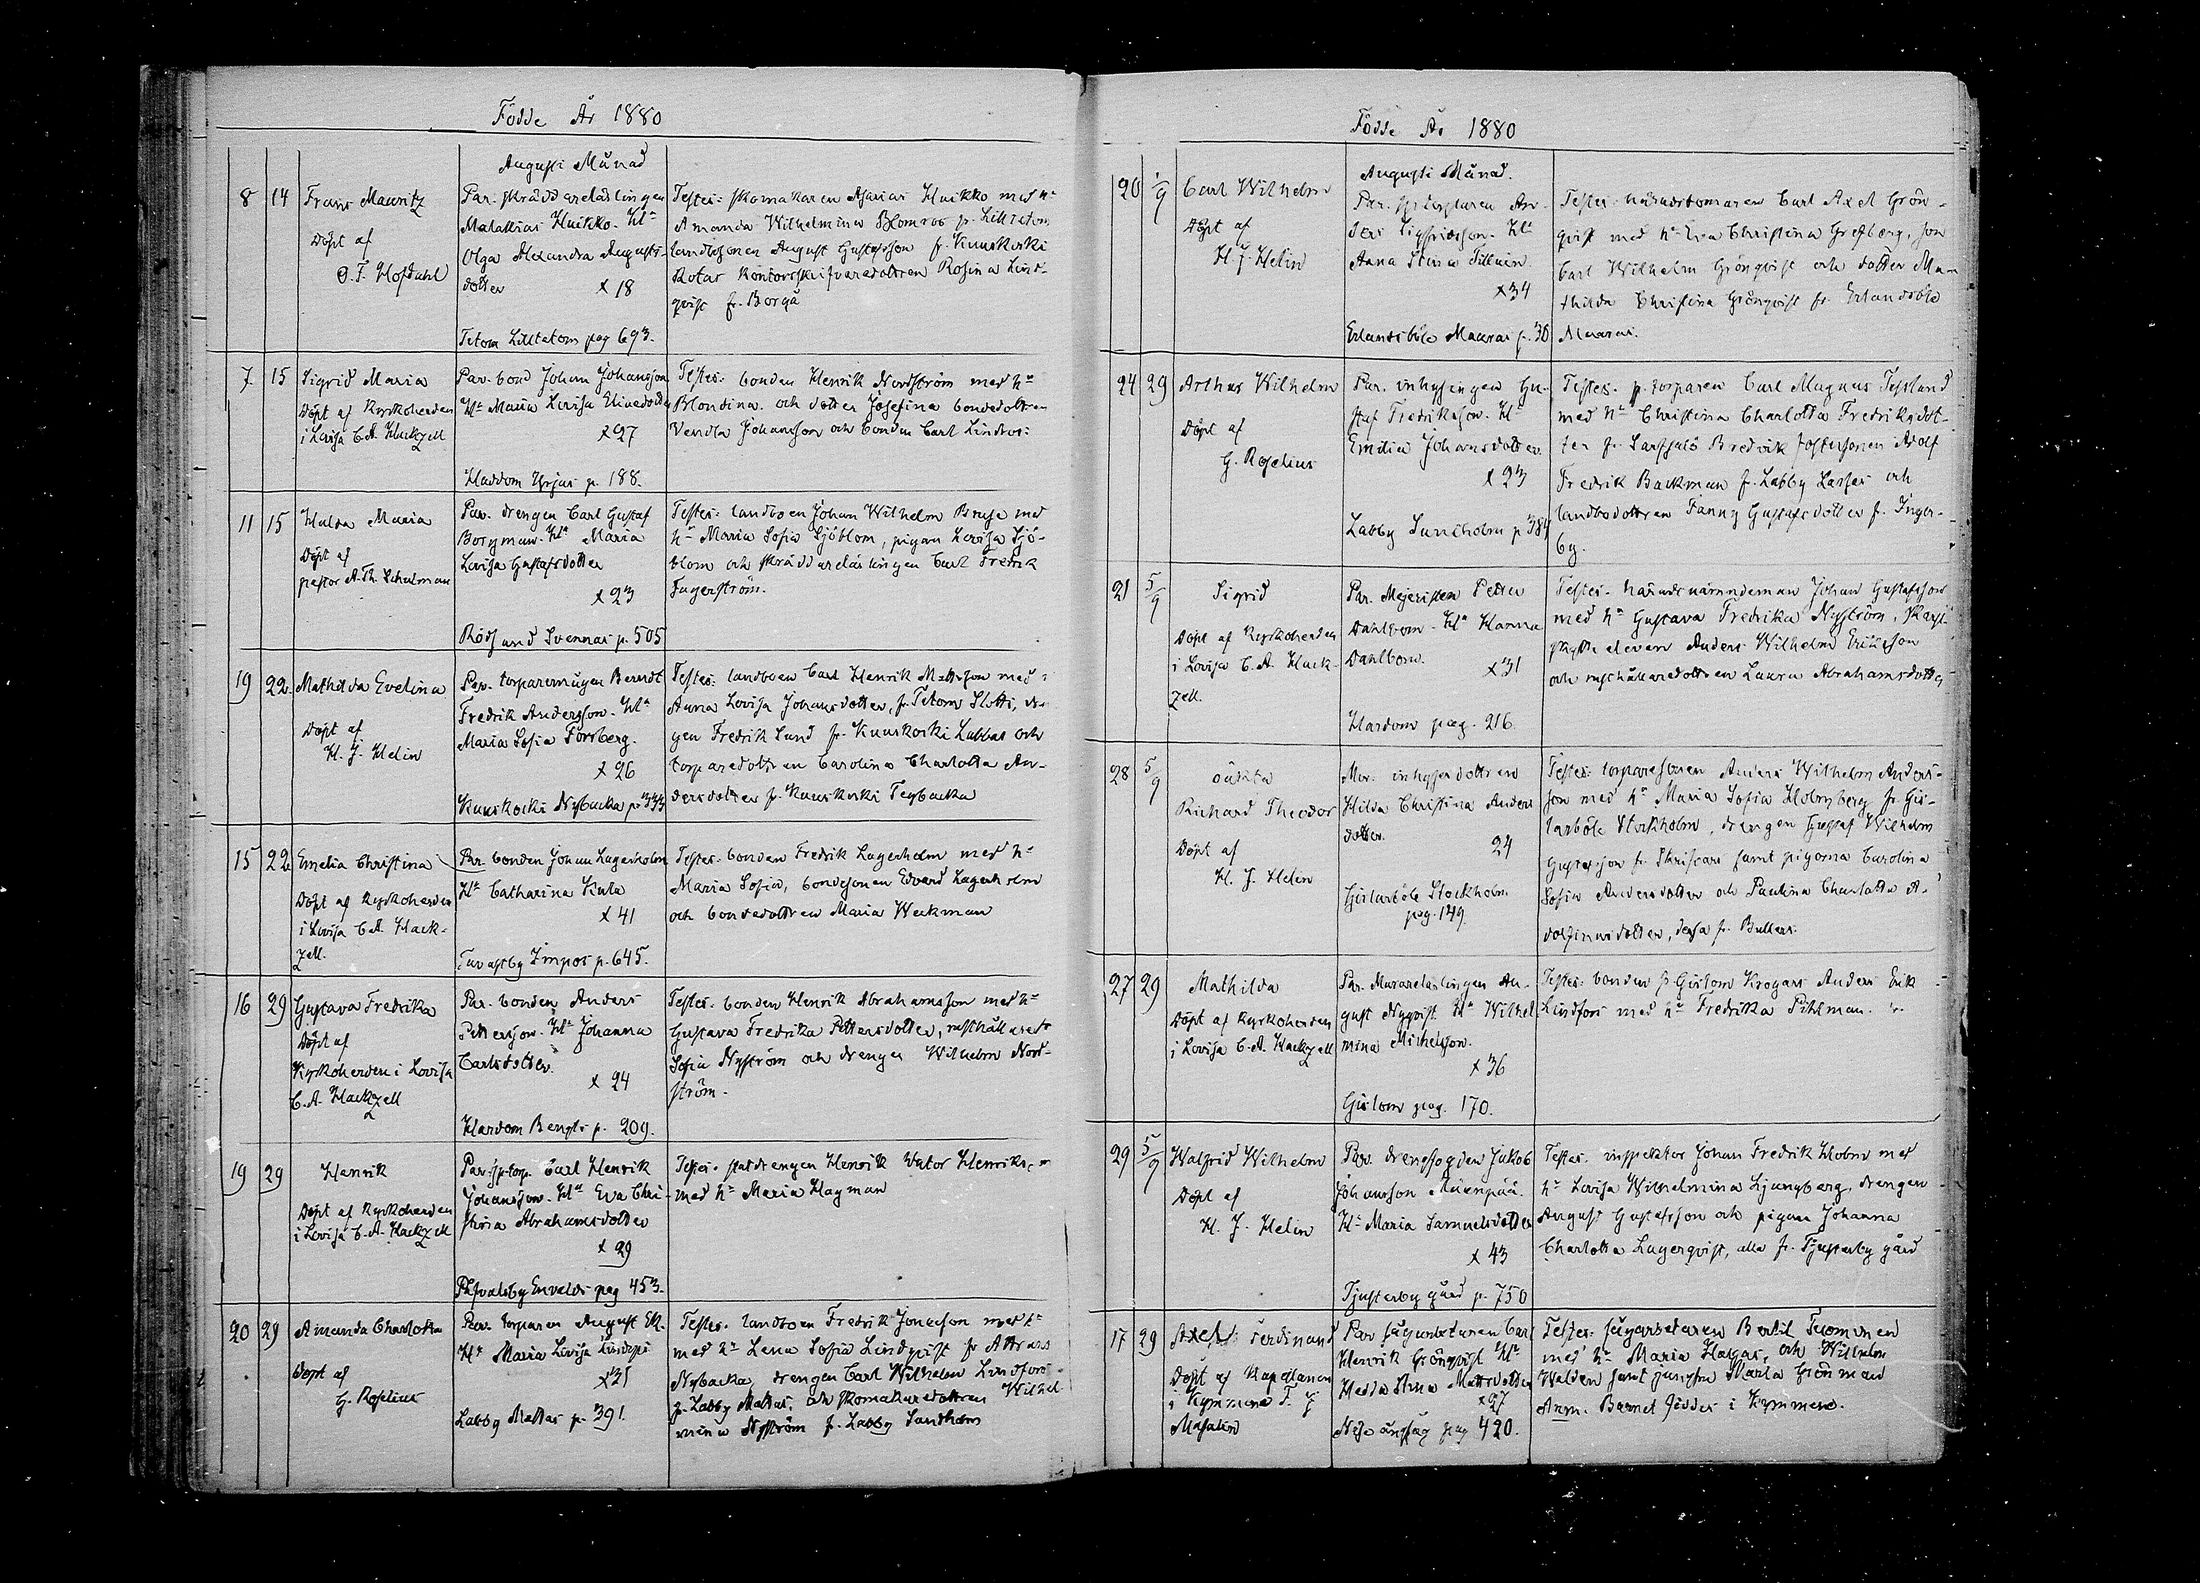 Födde År 1880
Augusti Månad
8 14 Frans Mauritz
Döpt af
O. F. Hofdahl
Par. skräddarelärlingen
Malakias Huikko. Hu
Olga Alexandra Augusts-
dotter x 18
Tetom Lilltetom pag 693.
Testes: skomakaren Asarias Huikko med hu
Amanda Wilhelmina Blomros fr. Lilltetom
landbosonen August Gustafsson fr. Kuuskoski
Rotar kontorsskrifvaredottren Rosina Lind-
qvist fr. Borgå
7 15 Sigrid Maria
Döpt af Kyrkoherden
i Lovisa C. A. Hackzell
Par. bond Johan Johansson
Hu Maria Lovisa Eliaedotter
x 27
Haddom Yrjas p. 188.
Testes: bonden Henrik Nordström med hu
Blondina och dotter Josefina bondedottren
Vendla Johansson och bonden Carl Lindros:
11 15 Hulda Maria
Döpt af
pastor A. Th. Schalman
Par. drengen Carl Gustaf
Borgman. Hu Maria
Lovisa Gustafsdotter
x 23
Rödsund Svennas p. 505
Testes: landboen Johan Wilhelm Bruse med
hu Maria Sofia Sjöblom, pigan Lovisa Sjö-
blom och skräddarelärlingen Carl Fredrik
Fagerström.
19 22 Mathilda Evelina
Döpt af
H. J. Helin
Par. torparemågen Berndt
Fredrik Andersson. Hu
Maria Sofia Forsberg.
x 26
Kuuskoski Nybacka p. 333
Testes: landboen Carl Henrik Mattsson med
Anna Lovisa Johansdotter, fr. Tetom Slotti, dr-
gen Fredrik Lund fr. Kuuskoski Labbas och
torparedottren Carolina Charlotta An-
dersdotter fr. Kuuskoski Teybacka
15 22 Emelia Christina
Döpt af Kyrkoherden
i Lovisa C. A. Hack-
zell.
Par. bonden Johan Lagerholm
Hu Catharina Kula
x 41
Tavastby Impos p. 645.
Testes: bonden Fredrik Lagerholm med hu
Maria Sofia, bondesonen Edvard Lagerholm
och bondedottren Maria Weckman
16 29 Gustava Fredrika
Döpt af
Kyrkoherden i Lovisa
C. A. Hackzell
Par. bonden Anders
Pettersson. Hu Johanna
Carlsdotter.
x 24
Hardom Bengts p. 209.
Testes: bonden Henrik Abrahamsson med hu
Gustava Fredrika Pettersdotter, rusthållared:r
Sofia Nyström och drengen Wilhelm Nord-
ström.
19 29 Henrik
Döpt af Kyrkoherden
i Lovisa C. A. Hackzell
Par. sptorp. Carl Henrik
Johansson. Hu Eva Chri-
stina Abrahamsdotter
x 29
Påsvalsby Envalds pag 453.
Testes: statdrengen Henrik Viktor Henriks
med hu Maria Hagman
20 29 Amanda Charlotta
Döpt af
G. Roselius
Par. torparen August Ek.
Hu Maria Lovisa Lindqvi
x 31
Labby Mattas p. 391.
Testes: landboen Fredrik Jonasson med
med hu Lena Sofia Lindqvist fr Attrans
Nybacka, drengen Carl Wilhelm Lindfors
fr. Labby Mattas, och skomakaredottren Wilhel
mina Nyström fr. Labby Sandholm
Födde År 1880
Augusti Månad.
20 1/9 Carl Wilhelm
Döpt af
H. J. Helin
Par. sptorparen An-
ders Sigfridsson. Hu
Anna Stina Tillman
x 34
Erlandsböle Mauras p. 30
Testes: häradsdomaren Carl Axel Grön-
qvist med hu Eva Christina Grefberg, son
Carl Wilhelm Grönqvist och dotter Ma-
thilda Christina Grönqvist fr. Erlandsböle
Mauras.
24 29 Arthur Wilhelm
Döpt af
G. Roselius
Par. inhysingen Gu-
staf Fredriksson. Hu
Emilia Johansdotter
x 23
Labby Sandholm p 384
Testes: sptorparen Carl Magnus Teslund
med hu Christina Charlotta Fredriksdot-
ter fr. Sarfsalö Bredvik fostersonen Adolf
Fredrik Backman fr. Labby Lasses och
landbodottren Fanny Gustafsdotter fr. Inger-
by.
21 5/9 Sigrid
Döpt af Kyrkoherden
i Lovisa C. A. Hack-
zell.
Par. Mejeristen Petter
Dahlbom. Hu Hanna
Dahlbom. x 31
Hardom pag. 216.
Testes: häradsnämndeman Johan Gustafsson
med hu Gustava Fredrika Nyström, skarp-
skytteeleven Anders Wilhelm Eriksson
och rusthållaredottren Laura Abrahamsdotter
28 5/9 oäkta
Richard Theodor
Döpt af
H. J. Helin
Mor: inhysesdottren
Hilda Christina Anders
dotter. 24
Gislarböle Stockholm
pag. 149.
Testes: torparesonen Anders Wilhelm Anders-
son med hu Maria Sofia Holmberg fr. Gis-
larböle Stockholm, drengen Gustaf Wilhelm
Gustafsson fr. Skriscars samt pigorna Carolina
Sofia Andersdotter och Paulina Charlotta A-
dolfinusdotter, dessa fr. Bullers.
27 29 Mathilda
Döpt af Kyrkoherden
i Lovisa C. A. Hackzell
Par. Murarelärlingen Au-
gust Nyqvist Hu Wilhel
mina Michelsson.
x 36
Gislom pag. 170.
Testes: bonden fr Gislom Krogars Anders Erik
Lindfors med hu Fredrika Pihlman.
29 5/9 Walfrid Wilhelm
Döpt af
H. J. Helin
Par. drengfogden Jakob
Johansson Mäenpää.
Hu Maria Samuelsdotter
x 43
Tjusterby gård p. 750
Testes: inspektor Johan Fredrik Holm med
hu Lovisa Wilhelmina Ljungberg, drengen
August Gustafsson och pigan Johanna
Charlotta Lagerqvist, alla fr. Tjusterby gård
17 29 Axel Ferdinand
Döpt af Kapellanen
i Kymmene F. J.
Masalin
Par sågarbetaren Carl
Henrik Grönqvist Hu
Hedda Stina Mattsdotter
x 27
Näse ångsåg pag 420.
Testes: sågarbetaren Bertil Tuominen
med hu Maria Halgas, och Wilhelm
Walden samt jungfru Maria Grönmark
Anm. Barnet föddes i Kymmene.